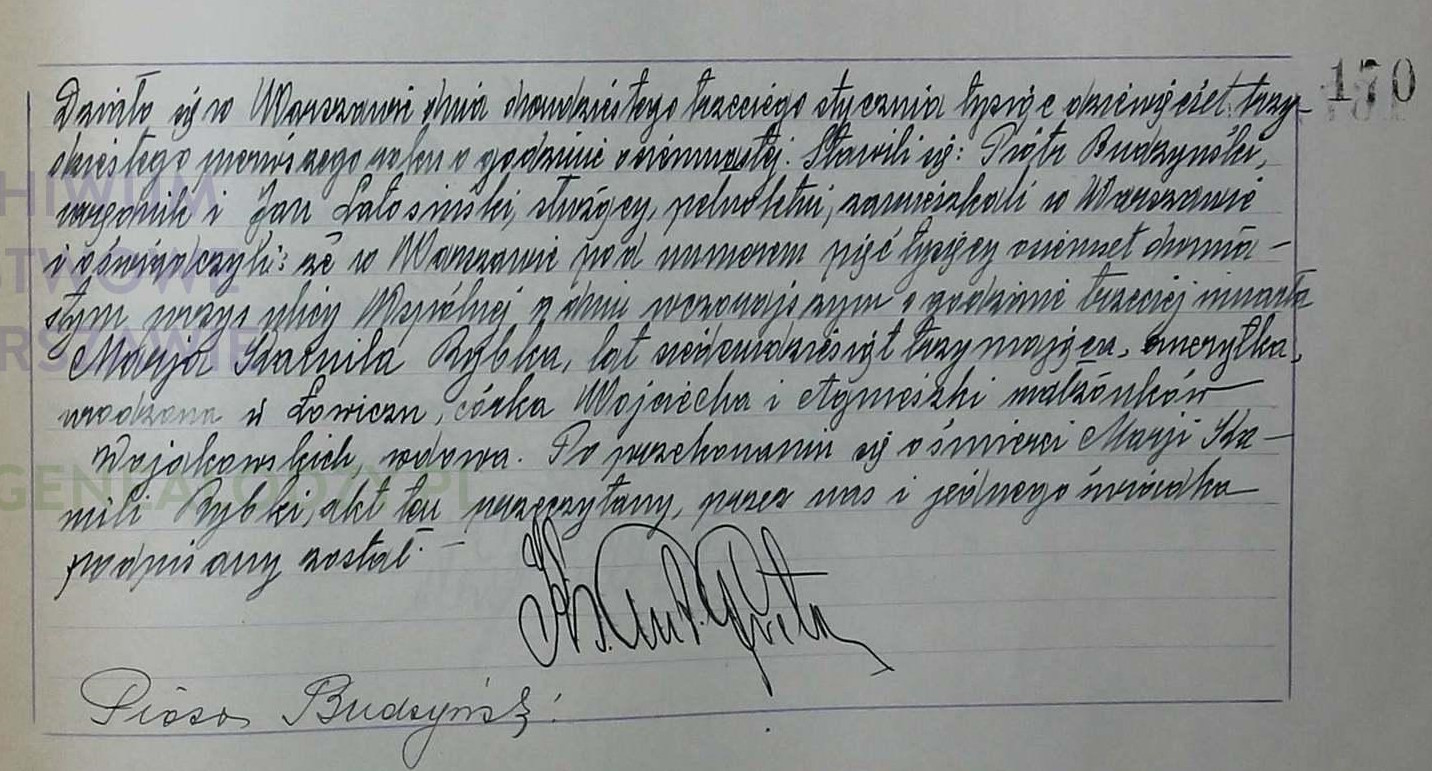 170
Działo się w Warszawie dnia dwudziestego trzeciego stycznia tysiąc dziewięćset trzy-
dziestego pierwszego roku o godzinie osiemnastej. Stawili się: Piotr Budzyński,
urzędnik i Jan Latosiński, służący, pełnoletni, zamieszkali w Warszawie
i oświadczyli: że w Warszawie pod numerem pięć tysięcy osiemset dwuna-
stym przy ulicy Wspólnej w dniu wczorajszym o godzinie trzeciej umarła
Marja Kamila Rybka, lat siedemdziesiąt trzy mająca, emerytka,
urodzona w Łowiczu, córka Wojciecha i Agnieszki małżonków
Wojakowskich wdowa. Po przekonaniu się o śmierci Marji Ka-
mili Rybki, akt ten przeczytany, przez nas i jednego świadka
podpisany został. —
Ks. Ant.
Piotr Budzyński
HIWUM
STWOWE
RSZAWIE
GENEALODZY.PL